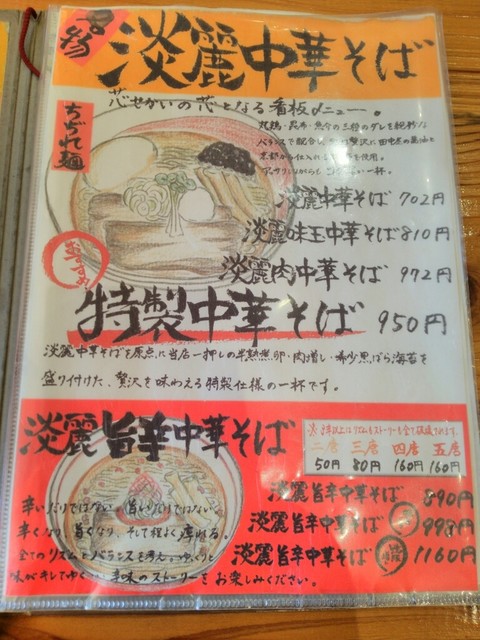 名物
淡麗中華そば
芯せかいの芯となる看板メニュー。
ちぢれ麺
丸鶏・昆布・魚介の三種のダレを絶妙な
バランスで配合し
淡麗中華そば 702円
淡麗味玉中華そば 810円
淡麗肉中華そば 972円
特製中華そば 950円
淡麗中華そばを原点に当店一押しの半熟煮卵・肉増し・希少黒ばら海苔を
盛り付けた、贅沢を味わえる特製仕様の一杯です。
淡麗旨辛中華そば
二辛 三辛 四辛 五辛
50円 80円 160円 160円
辛いだけではない。旨いだけではない。
辛くなり、旨くなり、そして程よく痺れる。
全てのリズムとバランスを考え、ゆっくりと
味がキレてゆく 辛味のストーリーをお楽しみください。
淡麗旨辛中華そば 890円
淡麗旨辛中華そば 998円
淡麗旨辛中華そば 特製 1160円